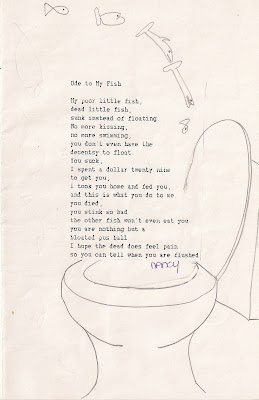 Ode to My Fish
My poor little fish,
dead little fish,
sunk instead of floating.
No more kissing,
no more swimming,
you don't even have the
decensty to float
You suck,
I spent a dollar twenty nine
to get you,
I took you home and fed you,
and this is what you do to me
you died,
you stink so bad
the other fish won't even eat you
you are nothing but a
bloated pus ball
I hope the dead does feel pain
so you can tell when you are flushed
NANCY